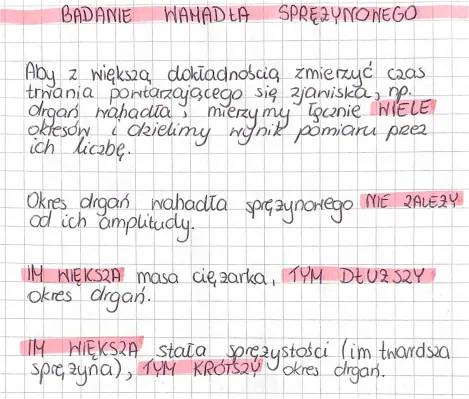 BADANIE WAHADŁA SPRĘŻYNOWEGO
Aby z większą dokładnością zmierzyć czas
trwania powtarzającego się zjawiska, np.
drgań wahadła, mierzymy łącznie WIELE
okresów i dzielimy wynik pomiaru przez
ich liczbę.
Okres drgań wahadła sprężynowego NIE ZALEŻY
od ich amplitudy.
IM WIĘKSZA masa ciężarka, TYM DŁUŻSZY
okres drgań.
IM WIĘKSZA stała sprężystości (im twardsza
sprężyna), TYM KRÓTSZY okres drgań.